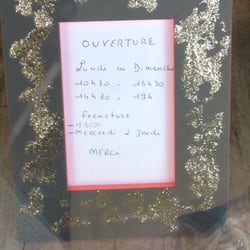 OUVERTURE
Lundi au Dimanche
10H30 - 13H30
14H30 - 19H
Fermeture
- MARDI
- Mercredi & Jeudi
MERCI